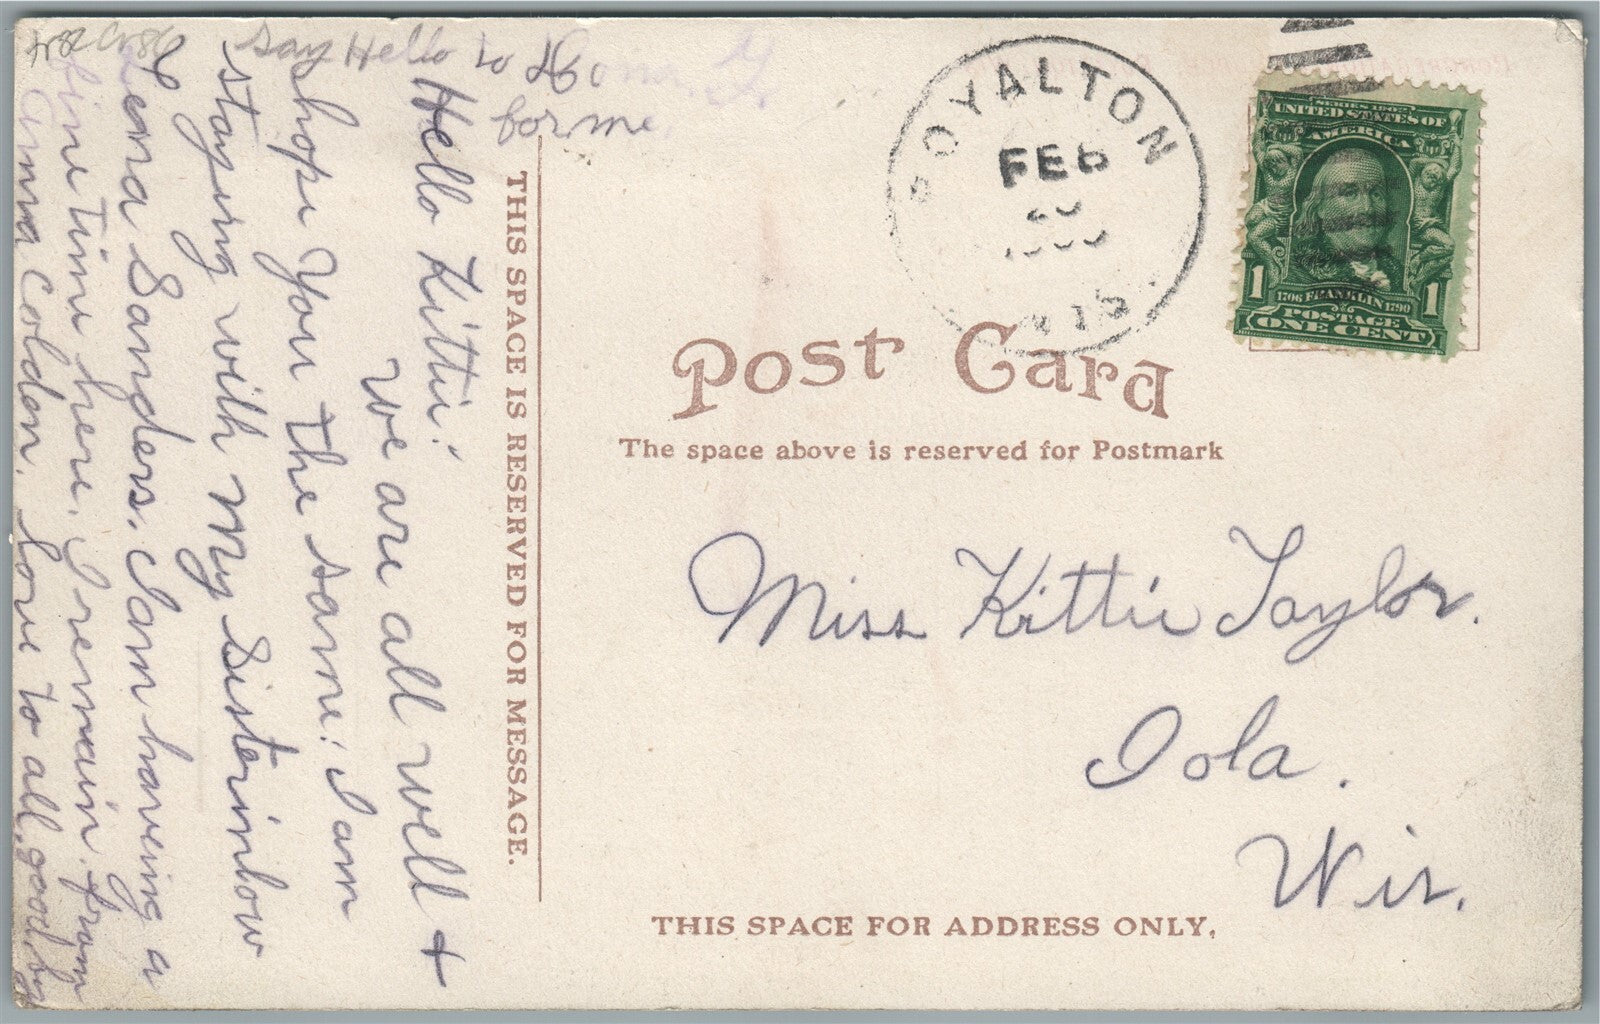 Say Hello to
for me.
Hello Kittie!
We are all well +
hope You the same. I am
staying with My Sisterinlow
Leona Sanders. I am having a
fine time here. I remain. from
Anna Colden. love to all. good by
THIS SPACE IS RESERVED FOR MESSAGE.
ROYALTON
FEB
WIS
SERIES 1902
UNITED STATES OF
AMERICA
1 1706 FRANKLIN 1790 1
POSTAGE
ONE CENT
Post Card
The space above is reserved for Postmark
Miss Kittie Taylor.
Iola.
Wis.
THIS SPACE FOR ADDRESS ONLY.